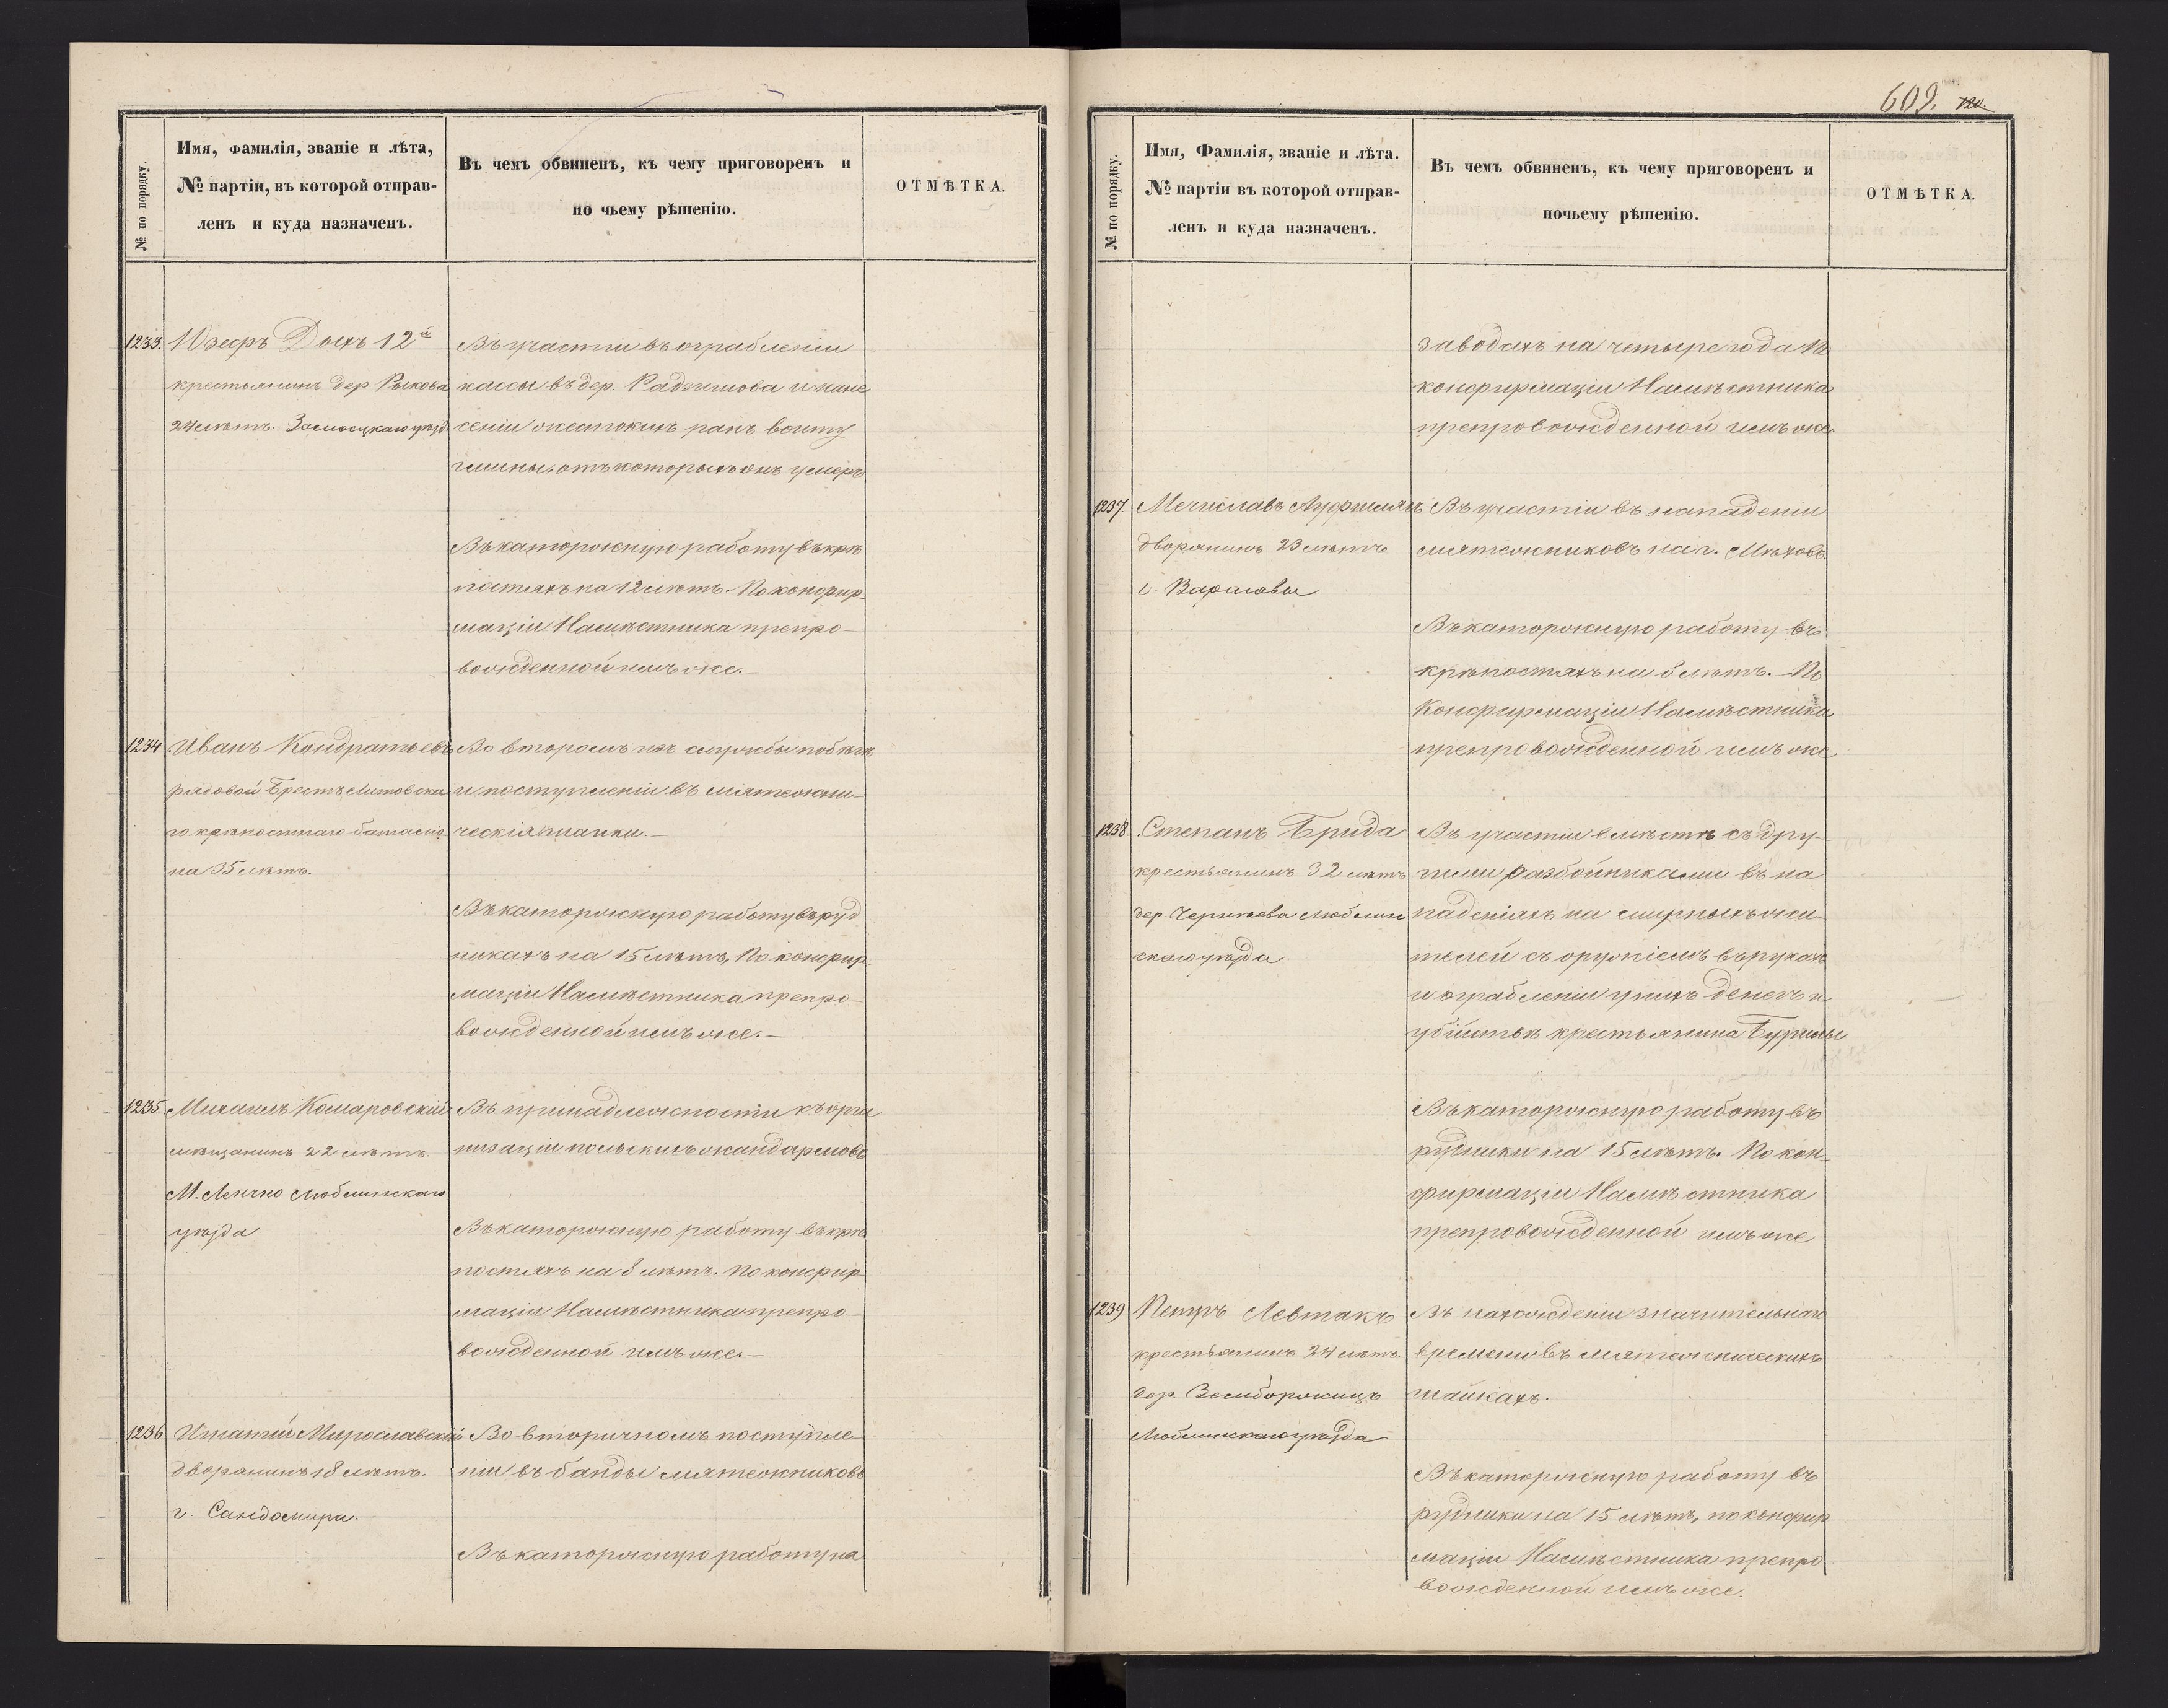 № по порядку.
Имя, Фамилія, званіе и лѣта,
№ партіи, въ которой отправ-
ленъ и куда назначенъ.
Въ чемъ обвиненъ, къ чему приговоренъ и
по чьему рѣшенію.
ОТМѢТКА.
1233. Юзефъ Дохъ 12й
крестьянинъ дер. Рыкова
24 лѣтъ. Замосцкаго уѣзд
Въ участіи въ ограбленіи
кассы въ дер. и нане
сеніи жестокихъ ранъ войту
гмины, отъ которыхъ онъ умеръ
Въ каторжную работу въ крѣ
постяхъ на 12 лѣтъ. По конфир-
маціи Намѣстника препро-
вожденной имъ же.—
1234 Иванъ Кондратьевъ
рядовой Брестъ Литовска
го крѣпостнаго баталіо-
на 35 лѣтъ.
Во второмъ изъ службы побѣгѣ
и поступленіи въ мятежни-
ческія шайки.—
Въ каторжную работу въ руд
никахъ на 15 лѣтъ, По конфир-
маціи Намѣстника препро-
вожденной имъ же.—
1235. Михаилъ Комаровскій
мѣщанинъ 22 лѣтъ.
М. Ленчно Люблинскаго
уѣзда
Въ принадлежности къ орга
низаціи польскихъ жандармовъ
Въ каторжную работу въ крѣ
постяхъ на 8 лѣтъ. По конфир
маціи Намѣстника препро-
вожденной имъ же.—
1236 Игнатій Мирославскій
дворянинъ 18 лѣтъ.
г. Сандомира.
Во вторичномъ поступле-
ніи въ банды мятежниковъ
Въ каторжную работу на
609. 120.
№ по порядку.
Имя, Фамилія, званіе и лѣта.
№ партіи въ которой отправ-
ленъ и куда назначенъ.
Въ чемъ обвиненъ, къ чему приговоренъ и
почьему рѣшенію.
ОТМѢТКА.
заводахъ на четыре года По
конфирмаціи Намѣстника
препровожденной имъ же.
1237. Мечиславъ
дворянинъ 23 лѣтъ
г. Варшавы
Въ участіи въ нападеніи
мятежниковъ на г. Мѣховъ.
Въ каторжную работу въ
крѣпостяхъ на 8 лѣтъ. По
Конфирмаціи Намѣстника
препровожденной имъ же
1238. Степанъ Брида
крестьянинъ 32 лѣтъ
дер. Люблин
скаго уѣзда
Въ участіи вмѣстѣ съ дру-
гими разбойниками въ на
паденіяхъ на мирныхъ жи-
телей съ оружіемъ въ рукахъ
и ограбленіи у нихъ денегъ и
убійствѣ крестьянина
Въ каторжную работу въ
рудники на 15 лѣтъ. По кон-
фирмаціи Намѣстника
препровожденной имъ же
1239 Петръ Левтакъ
крестьянинъ 24 лѣтъ.
дер.
Люблинскаго уѣзда
Въ нахожденіи значительнаго
времени въ мятежническихъ
шайкахъ.
Въ каторжную работу въ
рудники на 15 лѣтъ, по конфир
маціи Намѣстника препро
вожденной имъ же.